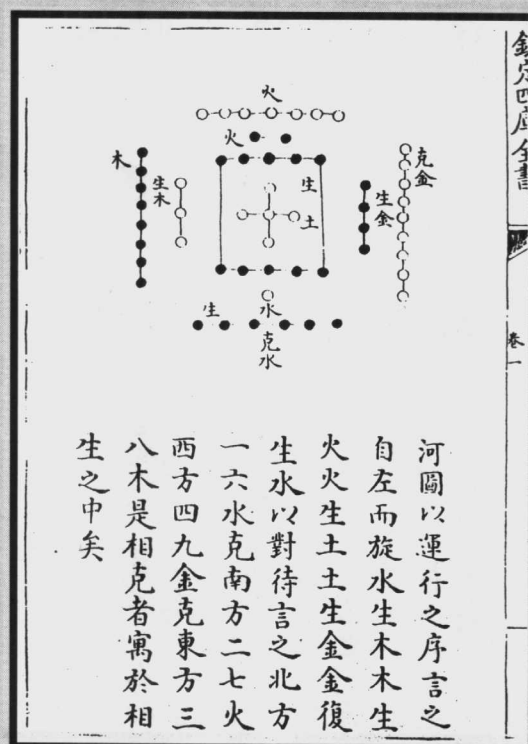 欽定四庫全書
卷一
火
火
木
生木
生
土
生金
克金
水
生
克水
河圖以運行之序言之
自左而旋水生木木生
火火生土土生金金復
生水以對待言之北方
一六水克南方二七火
西方四九金克東方三
八木是相克者寓於相
生之中矣